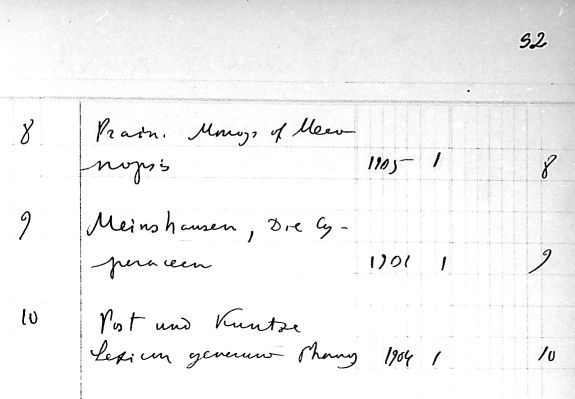 52
8 Prain. Monogr of Meco
nopsis 1905 1 8
9 Meinshausen, Die Cy-
peraceen 1901 1 9
10 Post und Kuntze
Lexicon generum Phang 1904 1 10